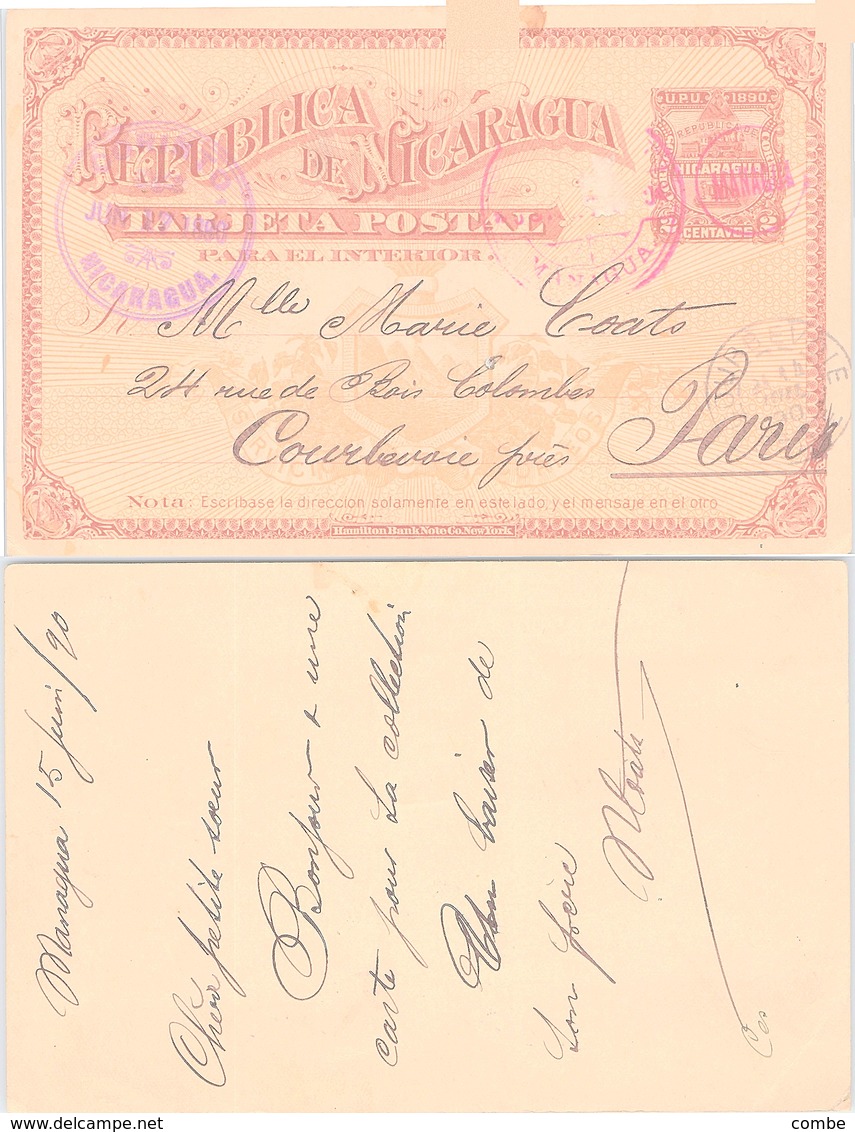 REPUBLICA
DE NICARAGUA
TARJETA POSTAL
PARA EL INTERIOR.
U.P.U. 1890.
REPUBLICA DE
NICARAGUA
2 CENTAVOS 2
MANAGUA
JUN 1890
NICARAGUA.
MANAGUA.
Mlle Marie Coats
24 rue de Bois Colombes
Courbevoie près Paris
Nota: Escribase la direccion solamente en este lado, y el mensaje en el otro
Hamilton Bank Note Co. New York.
Managua 15 Juin/90
Chère petite sœur
Bonjour & une
carte pour la collection
baiser de
ton frère
Coats
delcampe.net
combe